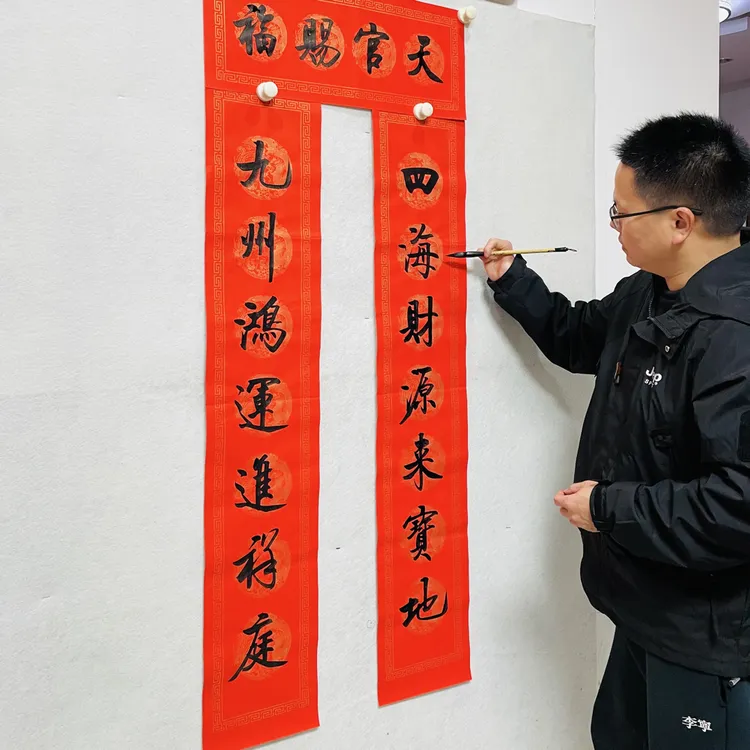 天官赐福
四海财源来寶地
九州鴻運進祥庭
李寧